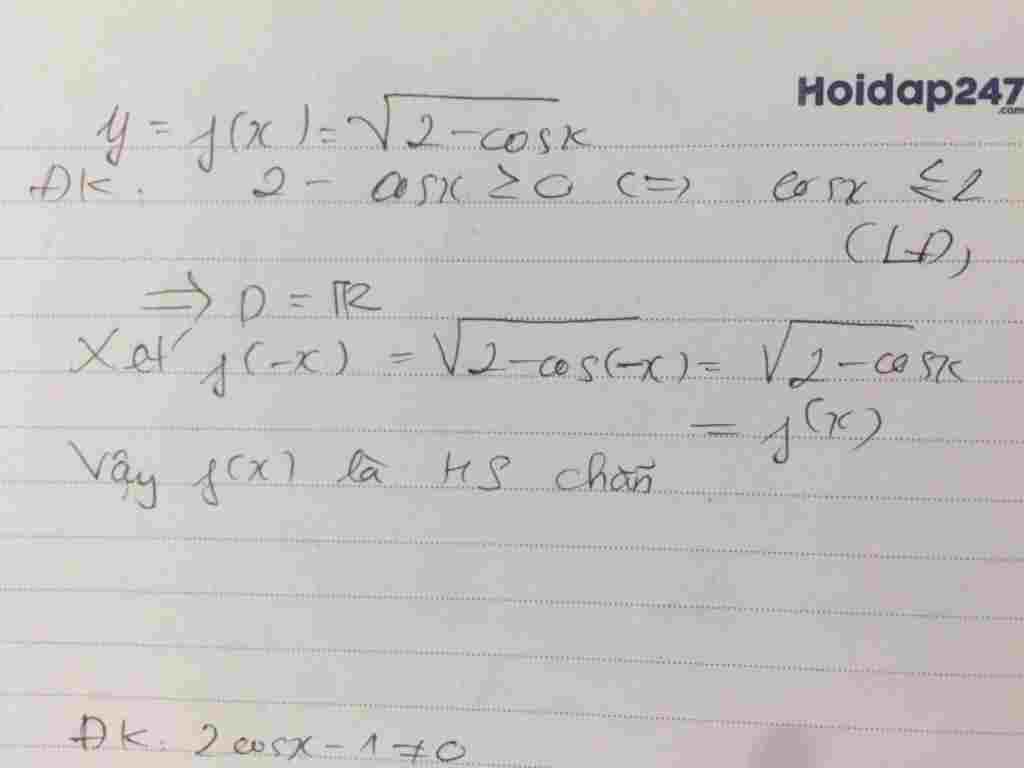 Hoidap247
.com
y = f(x) = √2-cosx
ĐK: 2 - cosx ≥ 0 <=> cosx ≤ 2
(LĐ)
=> D = ℝ
Xét f(-x) = √2-cos(-x) = √2-cosx
= f(x)
Vậy f(x) là HS chẵn
ĐK: 2cosx - 1 ≠ 0